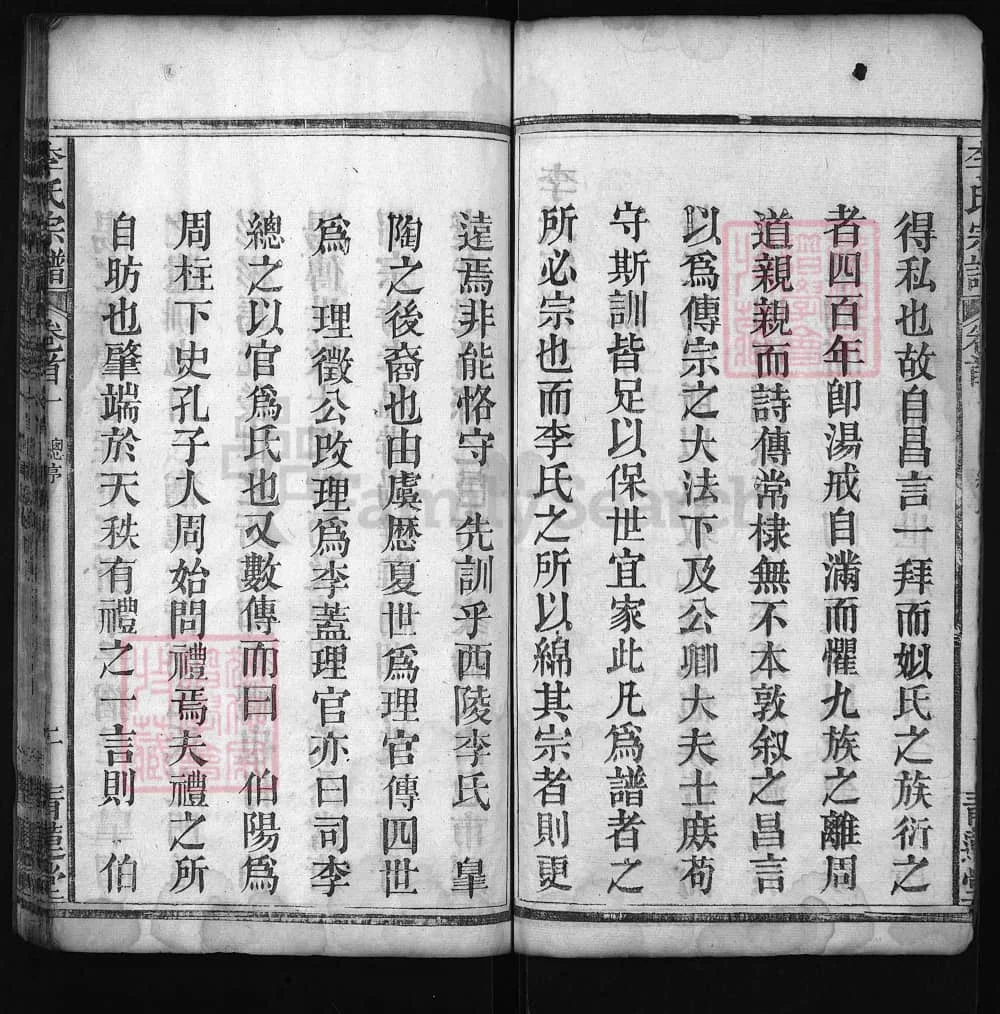 得私也故自昌言一拜而姒氏之族衍之
者四百年卽湯戒自滿而懼九族之離周
道親親而詩傳常棣無不本敦叙之昌言
以爲傳宗之大法下及公卿大夫士庶苟
守斯訓皆足以保世宜家此凡爲譜者之
所必宗也而李氏之所以綿其宗者則更
遠焉非能恪守 先訓乎西陵李氏 皐
陶之後裔也由虞歷夏世爲理官傳四世
爲 理徵公改理爲李蓋理官亦曰司李
總之以官爲氏也又數傳而曰 伯陽爲
周柱下史孔子入周始問禮焉夫禮之所
自昉也肇端於天秩有禮之一言則 伯
李氏宗譜 卷首一 總序
青蓮堂
FamilySearch